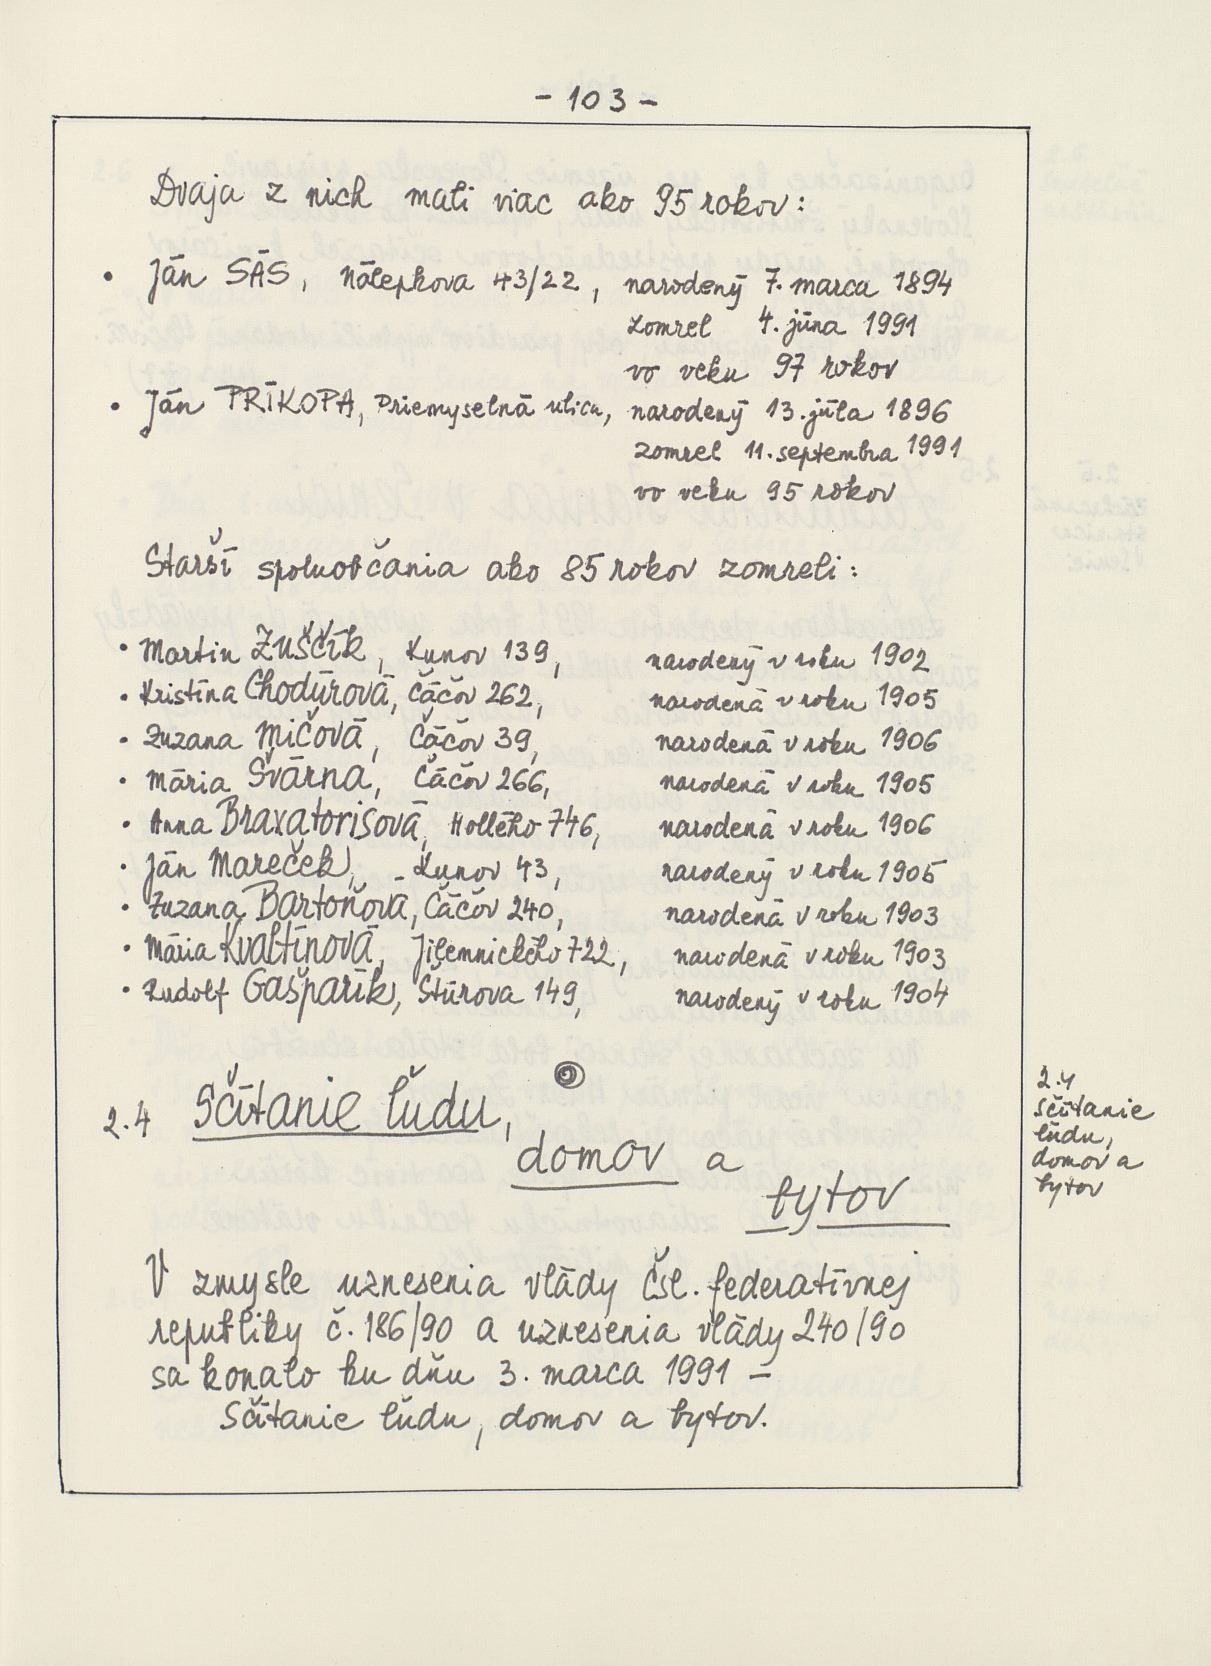 - 103 -
Dvaja z nich mali viac ako 95 rokov:
• Ján SÁS, Nálepkova 43/22, narodený 7. marca 1894
zomrel 4. júna 1991
vo veku 97 rokov
• Ján PRÍKOPA, Priemyselná ulica, narodený 13. júla 1896
zomrel 11. septembra 1991
vo veku 95 rokov
Starší spoluobčania ako 85 rokov zomreli:
• Martin Zuščík, Kunov 139, narodený v roku 1902
• Kristína Chodúrová, Čáčov 262, narodená v roku 1905
• Zuzana Mičová, Čáčov 39, narodená v roku 1906
• Mária Švárna, Čáčov 266, narodená v roku 1905
• Anna Braxatorisová, Hollého 746, narodená v roku 1906
• Ján Mareček, Kunov 43, narodený v roku 1905
• Zuzana Bartoňová, Čáčov 240, narodená v roku 1903
• Mária Kvaltínová, Jilemnického 722, narodená v roku 1903
• Rudolf Gašparík, Štúrova 149, narodený v roku 1904
2.4 Sčítanie ľudu,
domov a
bytov
2.4
sčítanie
ľudu,
domov a
bytov
V zmysle uznesenia vlády Čsl. federatívnej
republiky č. 186/90 a uznesenia vlády 240/90
sa konalo ku dňu 3. marca 1991 –
Sčítanie ľudu, domov a bytov.